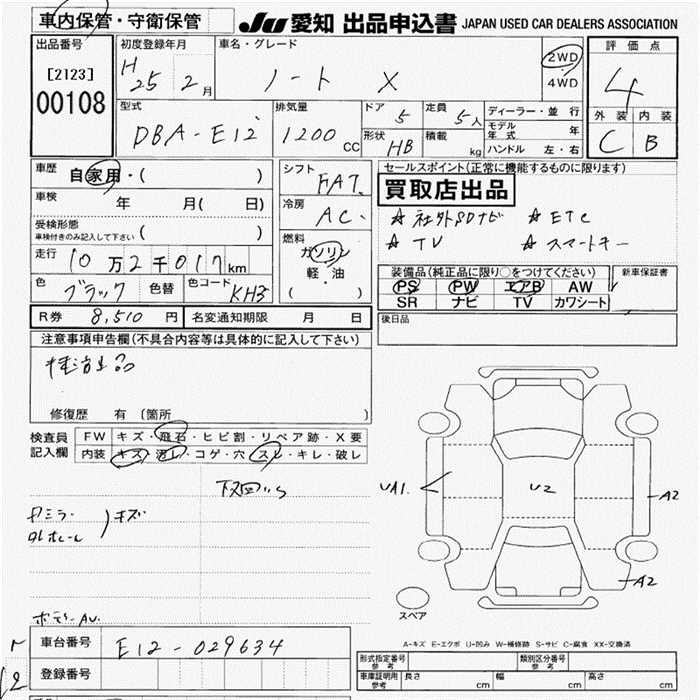 車内保管・守衛保管
JU 愛知 出品申込書 JAPAN USED CAR DEALERS ASSOCIATION
出品番号
[2123]
00108
初度登録年月
H 25 2月
車名・グレード
ノート X
2WD
4WD
評価点
4
外装 内装
C B
型式
DBA-E12
排気量
1200 CC
ドア 5
定員 5人
形状 HB
積載 kg
ディーラー・並行
モデル年式 年
ハンドル 左・右
車歴
自家用・( )
車検
年 月( 日)
受検形態
車検付きのみ記入して下さい ( )
走行
10万2千017km
色 ブラック 色替
色コード KH3
シフト
FAT
冷房
AC
燃料
ガソリン
軽・油
( )
セールスポイント(正常に機能するものに限ります)
買取店出品
☆ 社外SDナビ ☆ ETC
☆ TV ☆ スマートキー
装備品(純正品に限り○をつけてください)
PS PW エアB AW
SR ナビ TV カワシート
新車保証書
R券 8,510円
名変通知期限 月 日
後日品
注意事項申告欄(不具合内容等は具体的に記入して下さい)
修復歴 有 (箇所 )
検査員記入欄
FW キズ・飛石・ヒビ割・リペア跡・X要
内装 キズ・汚レ・コゲ・穴・スレ・キレ・破レ
キズ
UA1.
U2
A2
A2
スペア
A-キズ E-エクボ U-凹み W-補修跡 S-サビ C-腐食 XX-交換済
車台番号
E12-029634
登録番号
形式指定番号 参考
類別区分番号 参考
車庫証明用 参考
長さ cm
幅 cm
高さ cm